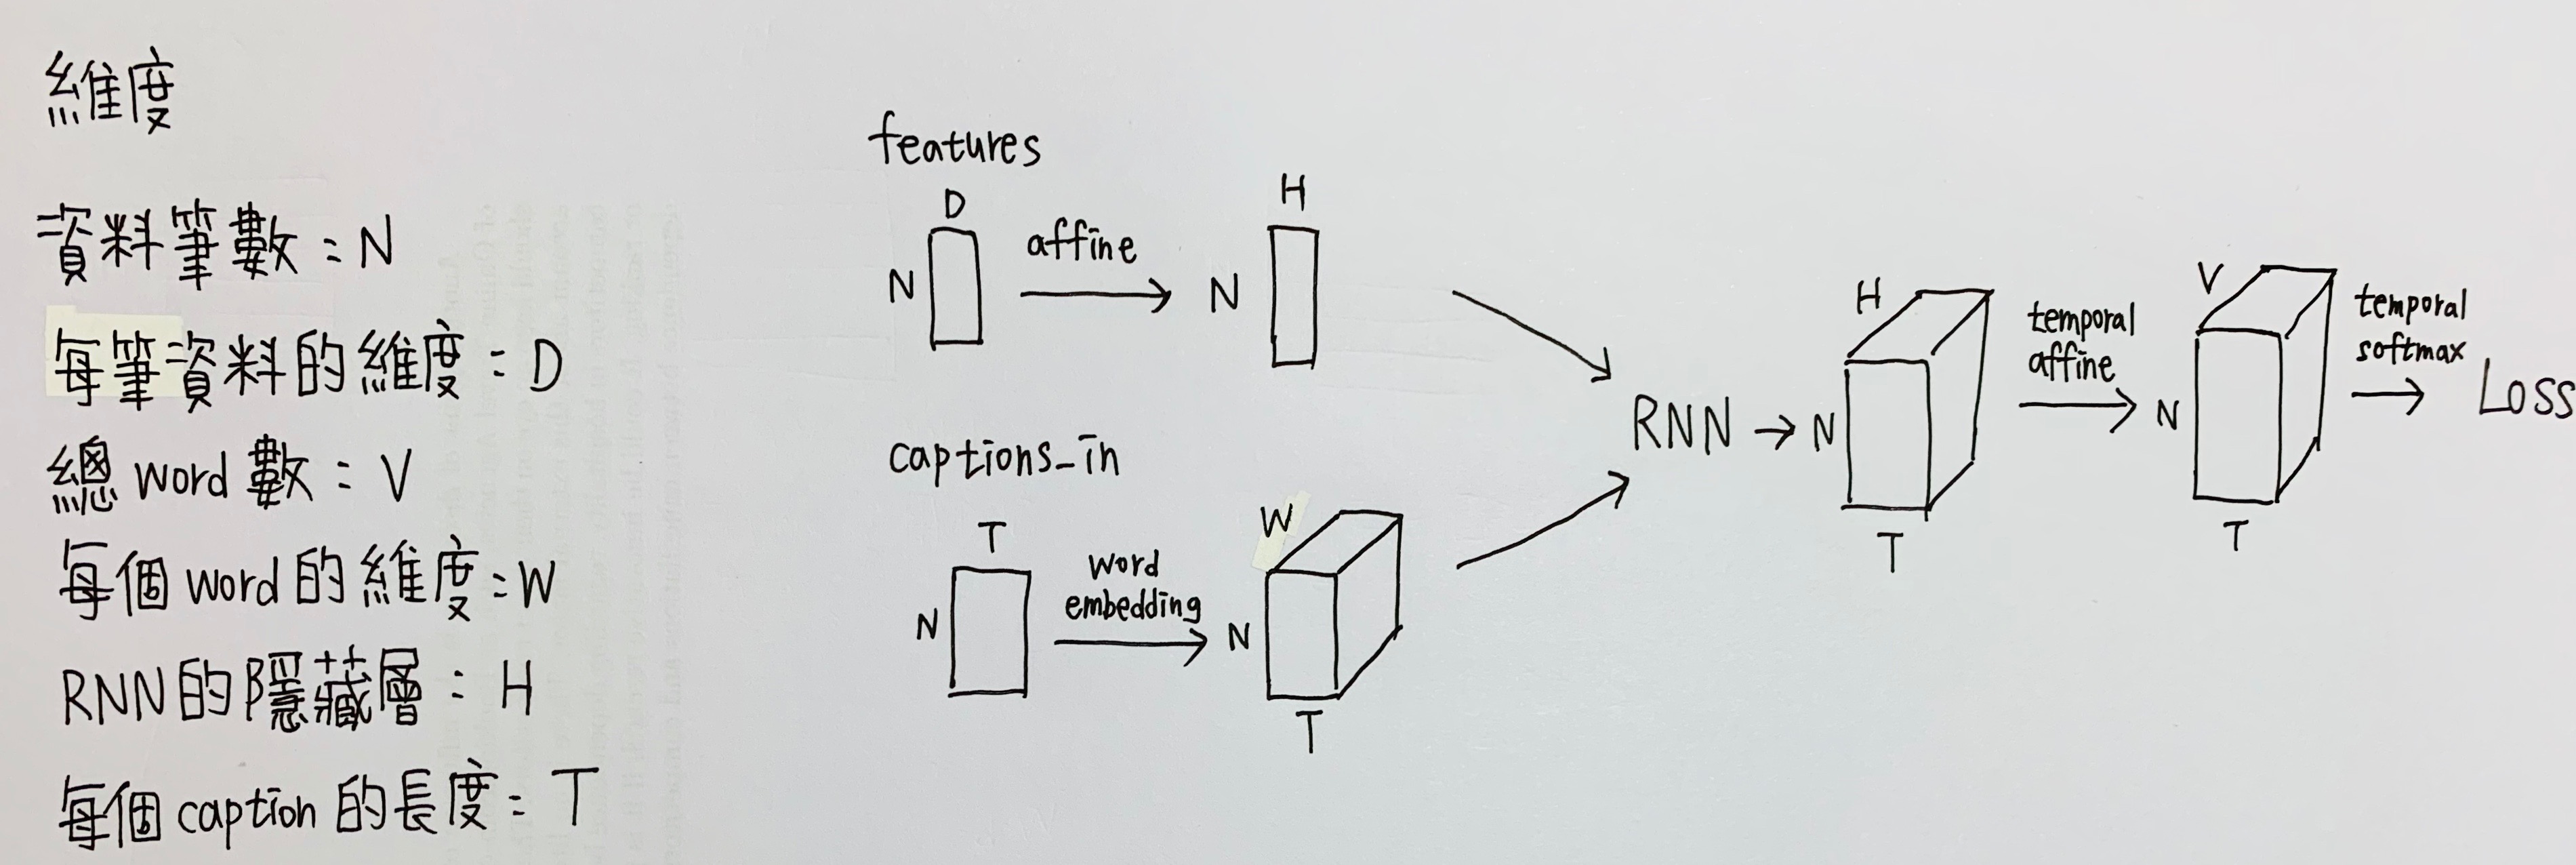 維度
資料筆數:N
每筆資料的維度:D
總word數:V
每個word的維度:W
RNN的隱藏層:H
每個caption的長度:T
features
D
N
affine
H
N
captions_in
T
N
word
embedding
W
N
T
RNN
H
N
T
temporal
affine
V
N
T
temporal
softmax
Loss